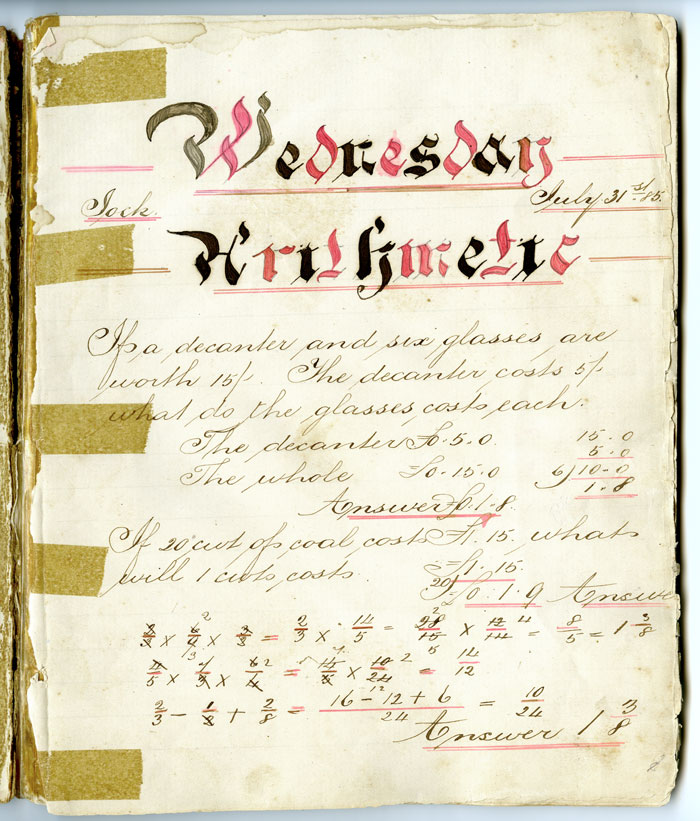 Wednesday
Jock.
July 31st 85.
Arithmetic
If a decanter and six glasses are
worth 15/. The decanter costs 5/.
what do the glasses costs each.
The decanter £0.5.0. 15.0
5.0
The whole £0.15.0 6)10-0
1.8
Answer £0.1.8.
If 20 cwt of coal costs £1.15, whats
will 1 cwts costs. £1.15
20)£0.1.9 Answer
= 2/3 × 14/5 = 28/15 × 12/14 = 8/5 = 1 3/8
= 15/8 × 10/24 = 14/12
2/3 - 1/2 + 2/8 = 16-12+6/24 = 10/24
Answer 1 3/8